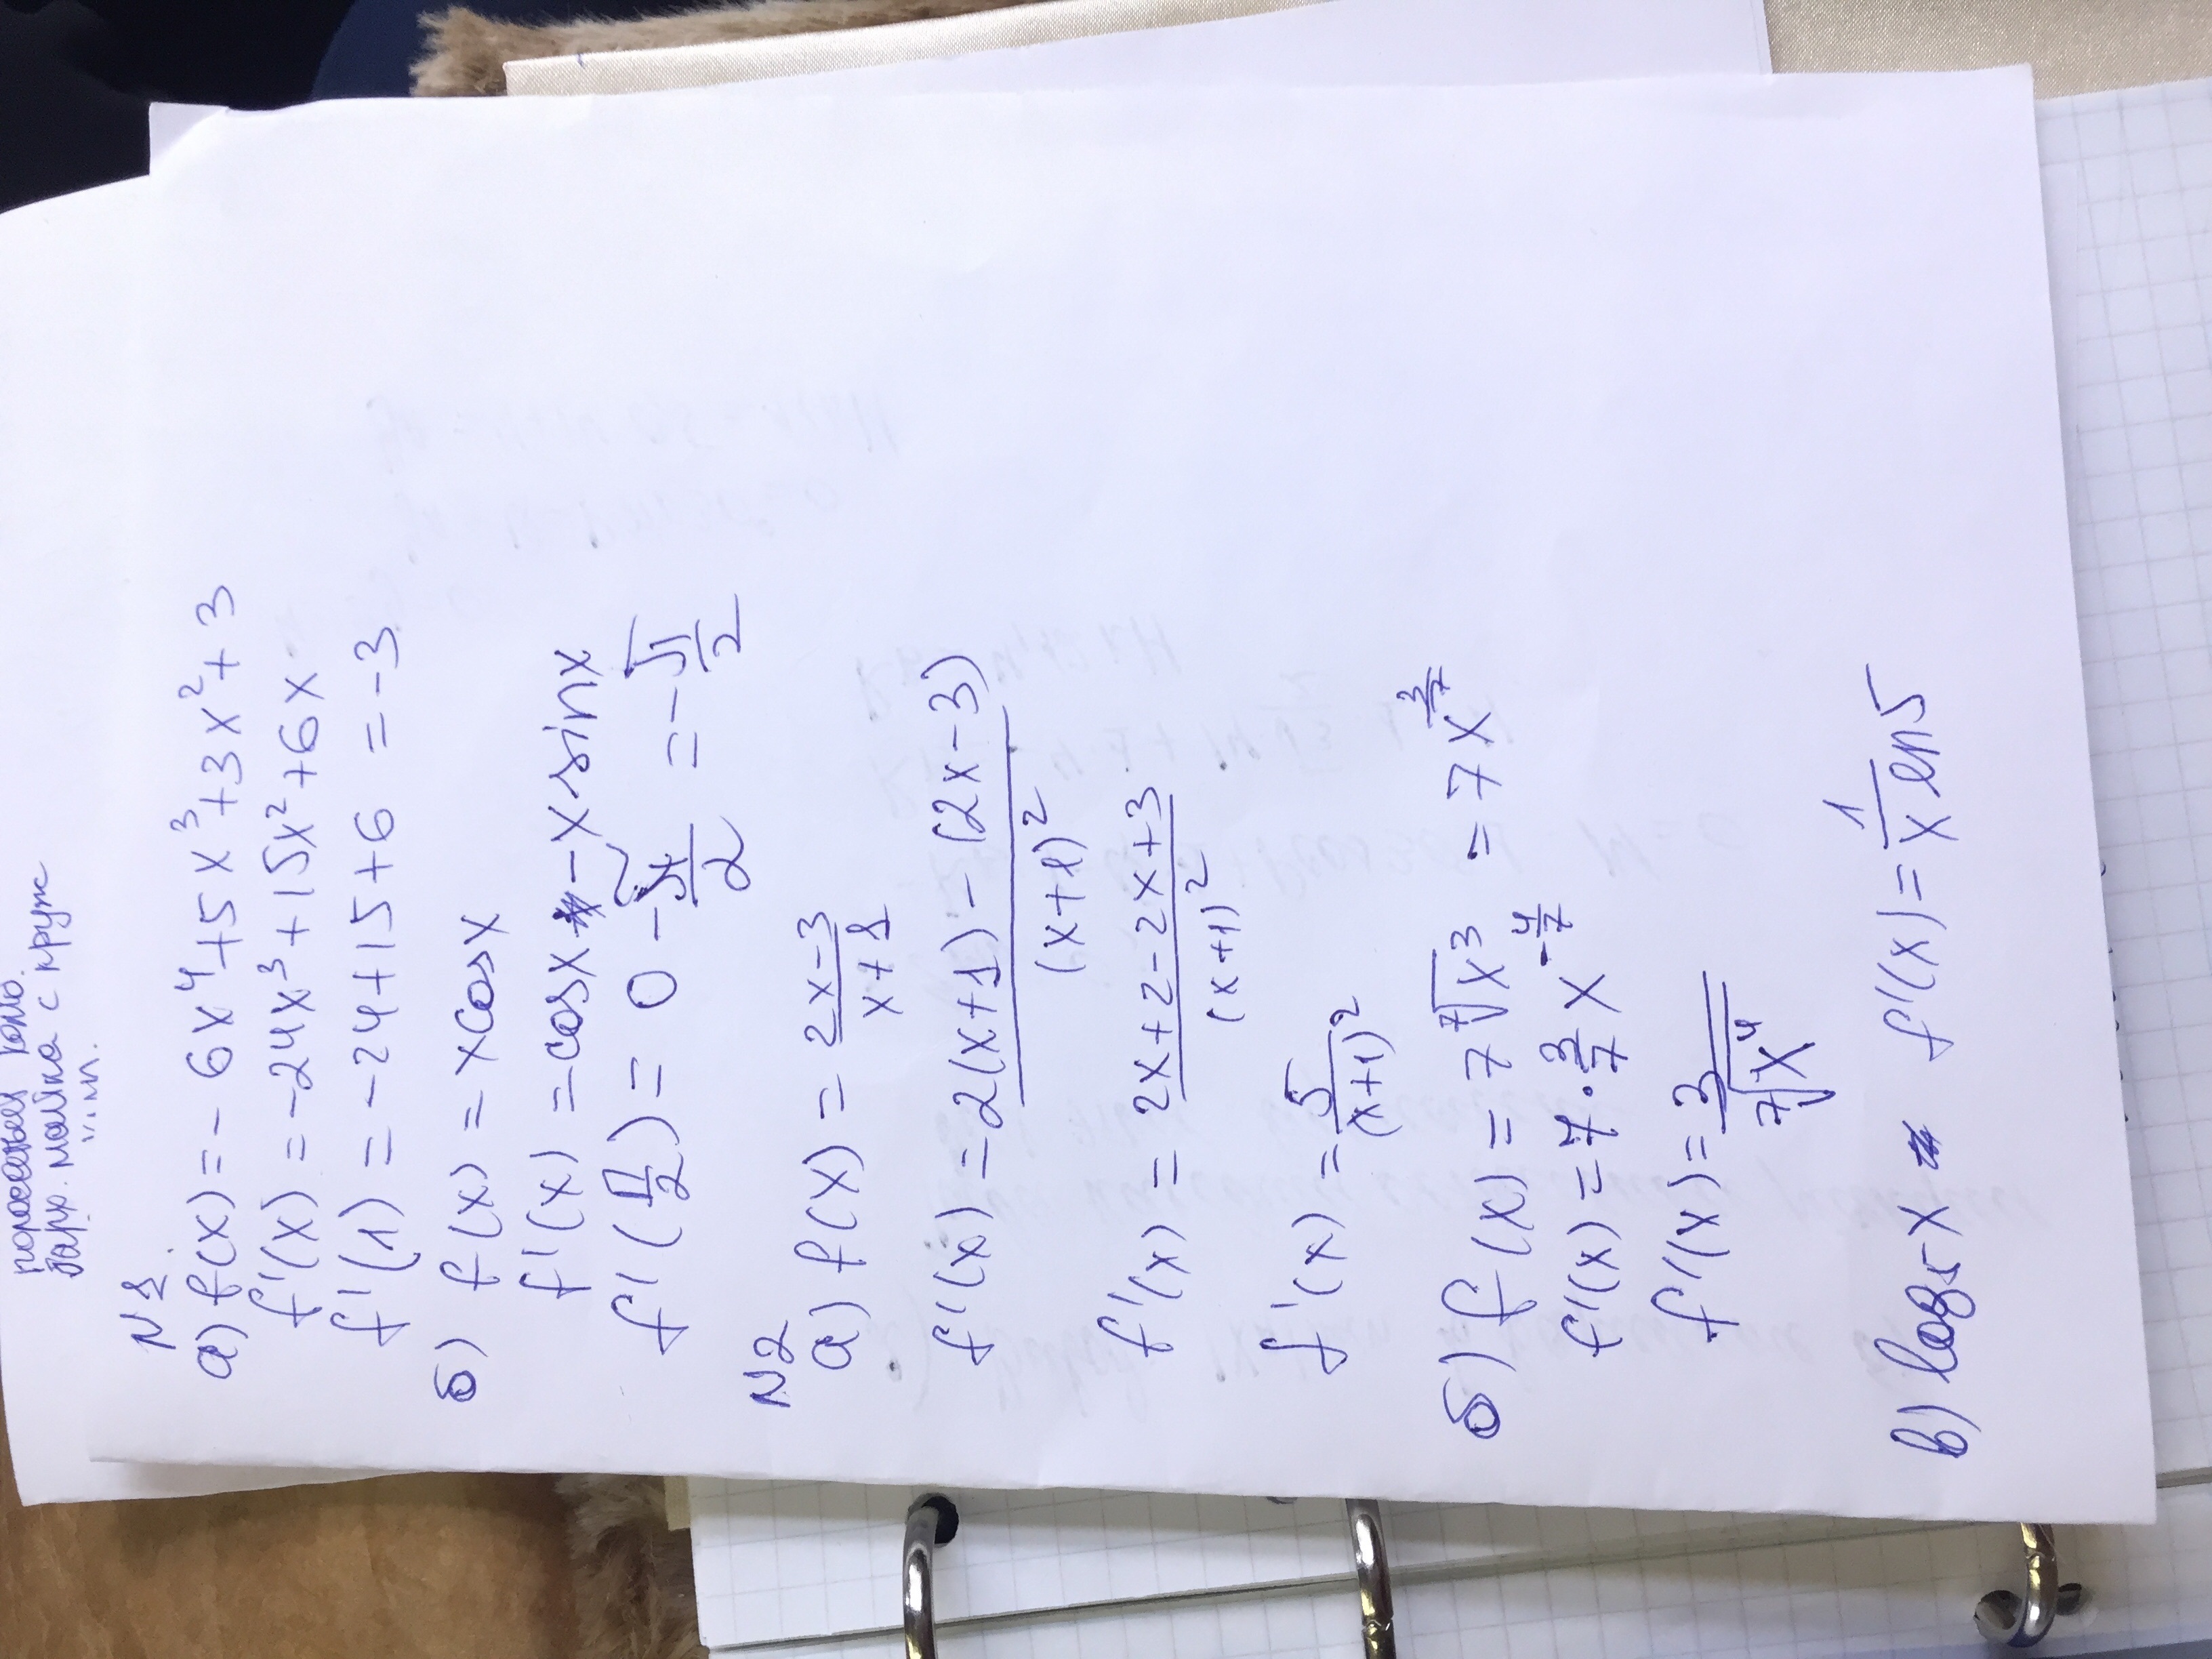 поросячья
Зарх. майка с круж
N1
а) f(x) = - 6x⁴+5x³+3x²+3
f'(x) = -24x³+15x²+6x
f'(1) = -24+15+6 = -3
б) f(x) = xcosx
f'(x) = cosx - x sinx
f'(π/2) = 0 - π/2 = - π/2
N2
а) f(x) = (2x-3)/(x+1)
f'(x) = (2(x+1) - (2x-3))/(x+1)²
f'(x) = (2x+2-2x+3)/(x+1)²
f'(x) = 5/(x+1)²
б) f(x) = 7 ⁷√x³ = 7x^(3/7)
f'(x) = 7·3/7 x^(-4/7)
f'(x) = 3/⁷√x⁴
в) log₅x f'(x) = 1/(x ln5)